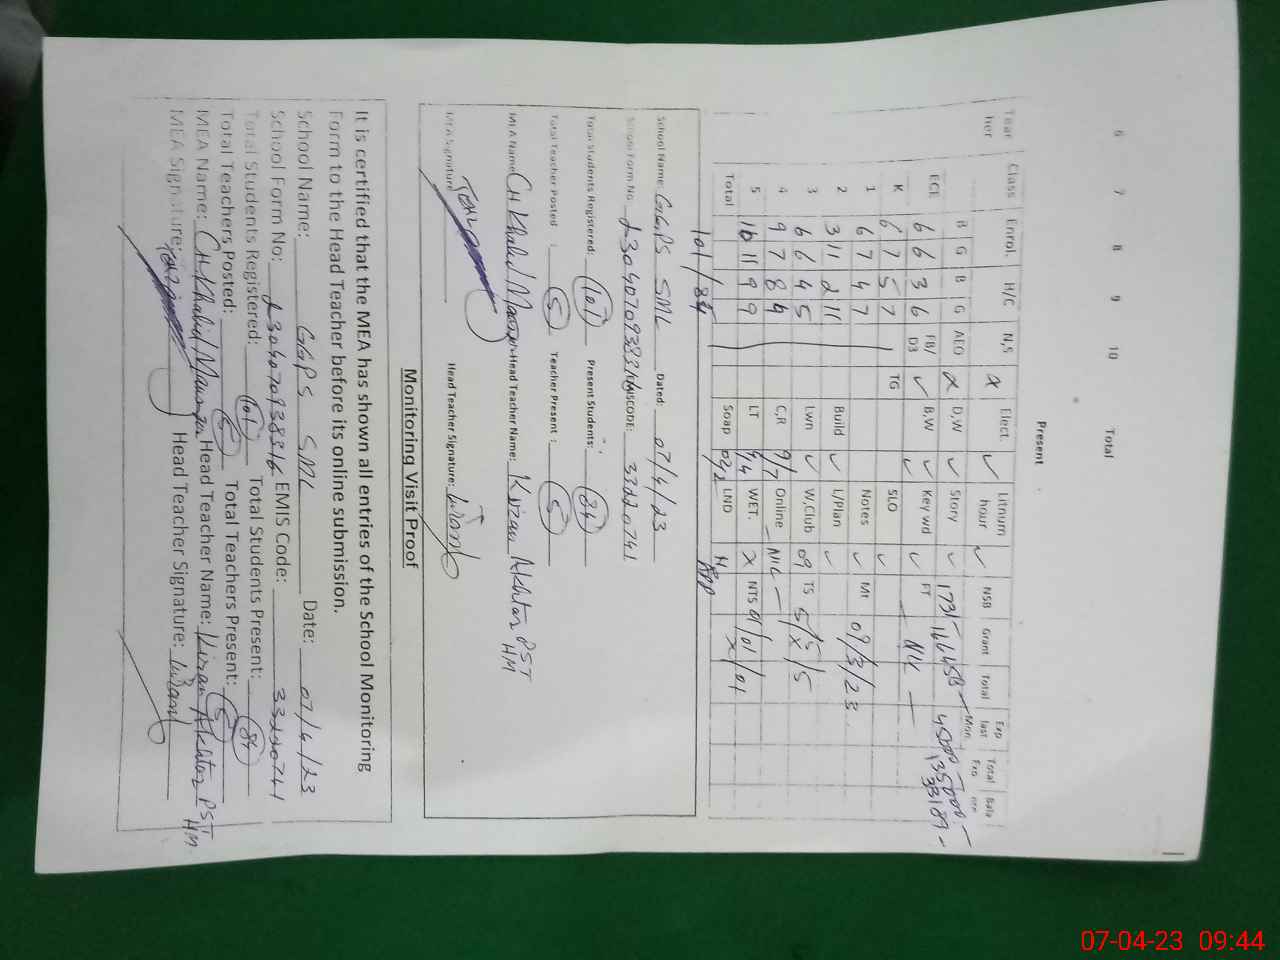 6 7 8 9 10 Total
Present
Teacher Class Enrol. H/C N,S Elect. ✓ Litnum hour ✓ NSB Grant Total Exp last Mon. Total Exp Bala nce
B G B G AEO D,W ✓ Story ✓
ECE 6 6 3 6 FB/D3 ✓ B,W ✓ Key wd ✓ FT NIL
K 6 7 5 7 TG ✓ SLO ✓
1 6 7 4 7 Notes ✓ Mt 09/3/23
2 3 11 2 11 Build ✓ L/Plan ✓
3 6 6 4 5 Lwn ✓ W,Club 09 TS 5/5/5
4 9 7 8 4 C,R 9/7 Online NIL
5 10 11 9 9 LT WET. X NTS 01/01
Total Soap LND N
101/84
School Name: GGPS SML Dated: 07/4/23
School Form No EMISCODE: 33220741
Total Students Registered: 101 Present Students: 84
Total Teacher Posted : 5 Teacher Present : 5
MEA Name: CH Khalid Head Teacher Name: Kiran Akhtar PST HM
MEA Signature Head Teacher Signature: Kiran
Monitoring Visit Proof
It is certified that the MEA has shown all entries of the School Monitoring
Form to the Head Teacher before its online submission.
School Name: GGPS SML Date: 07/4/23
School Form No: EMIS Code: 33220741
Total Students Registered: 101 Total Students Present: 84
Total Teachers Posted: 5 Total Teachers Present: 5
MEA Name: CH Khalid Head Teacher Name: Kiran Akhtar PST HM
MEA Signature: Head Teacher Signature: Kiran
07-04-23 09:44